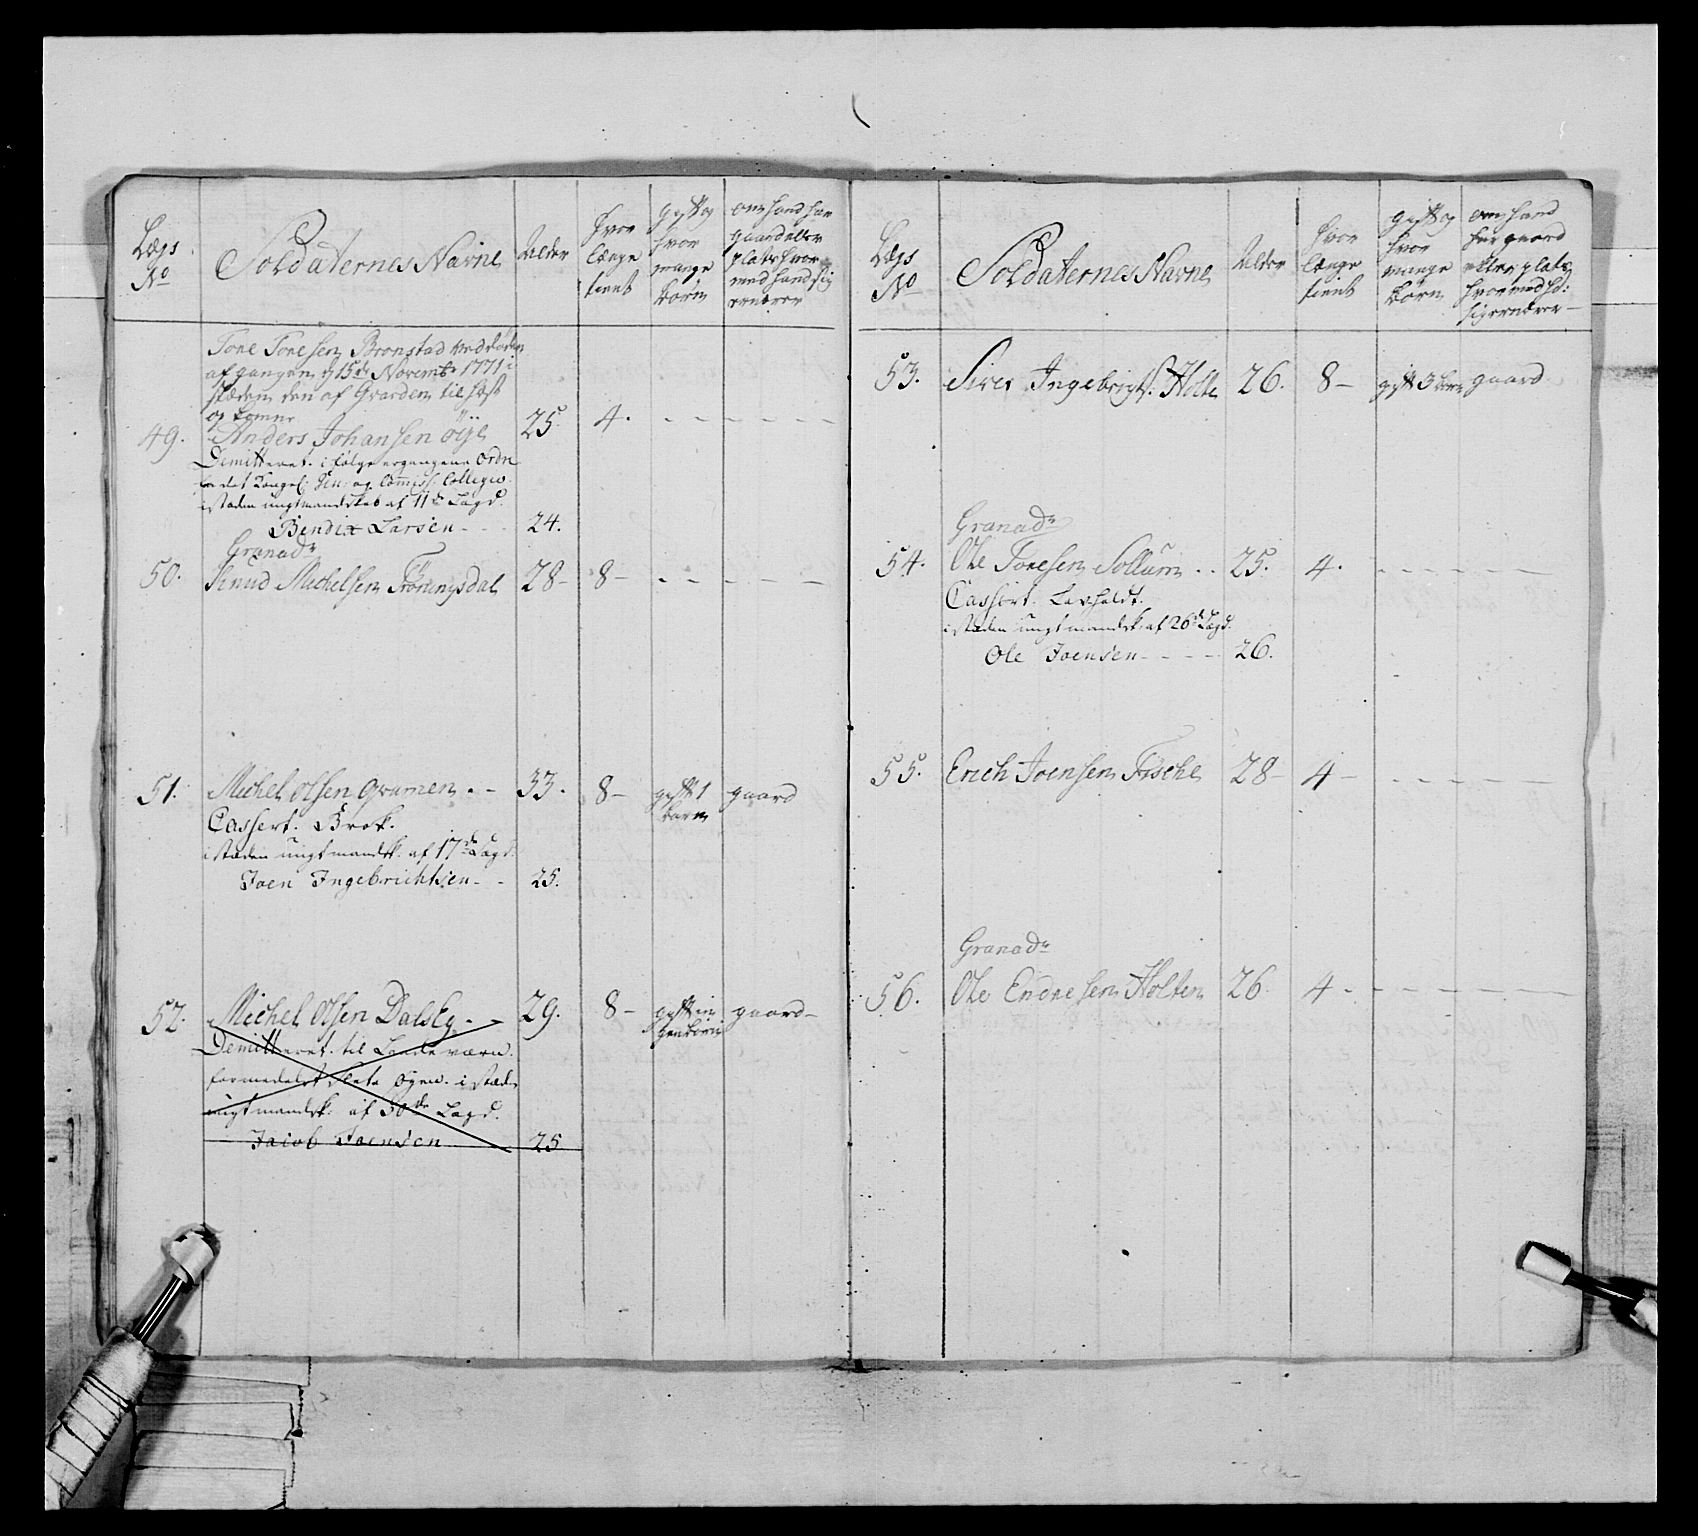 Lægs No
Soldaternes Navne
Alder
hvor længe tient
gift og hvor mange børn
om hand har gaard eller plats hvor med hand sig ernærer
Tore Toresen Bronstad ved døden
afgangen d 15de Novembr 1771 i
stæden den af Gvarden til hest
og komne
49. Anders Johansen Öÿe 25. 4. - - - - - -
Demitteret i følge ergangene Ordre
fra det Kongel: Gen: og Commiss: Collegio
i stæden ungtmandskab af 11te Lægd.
Bendix Larsen - - - 24.
Granadr
50. Knud Michelsen Trönningsdal 28- 8- - - - - - -
51. Michel Olsen Qvamen . - 33. 8- gift 1 barn gaard
Cassert. Brok.
i stæden ungtmandsk. af 17de Lægd.
Joen Ingebrichtsen - - 25.
52. Michel Olsen Dalsby - - 29. 8- gift ingen børn gaard-
Demitteret til Landeværn.
formedelst slete Øyen. i stæden
ungtmandsk: af 30de Lægd.
Jacob Joensen 25
Lægs No
Soldaternes Navne
Alder
hvor længe tient
gift og hvor mange børn
om hand har gaard eller plats hvormed hd: sig ernærer-
53. Siver Ingebrigts: Holte 26. 8- gift 3 børn gaard
Granadr
54. Ole Toresen Sollum . . 25. 4. - - - - - -
Cassert.
i stæden ungtmandsk: af 26de Lægd.
Ole Joensen - - - - 26.
55. Erich Joensen Fische 28- 4- - - - - - -
Granadr
56. Ole Endresen Holten 26. 4- - - - - - -